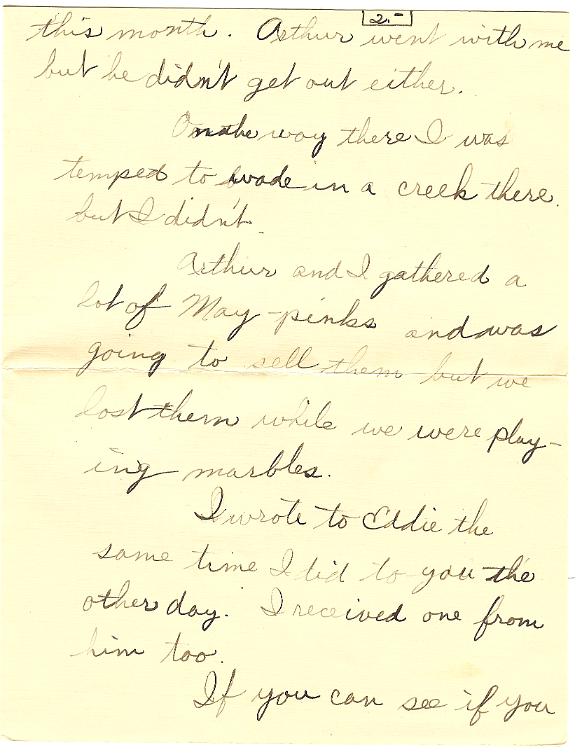 2.-
this month. Arthur went with me
but he didn't get out either.
On the way there I was
temped to wade in a creek there.
but I didn't.
Arthur and I gathered a
lot of May-pinks and was
going to sell them but we
lost them while we were play-
ing marbles.
I wrote to Eddie the
same time I did to you the
other day. I received one from
him too.
If you can see if you